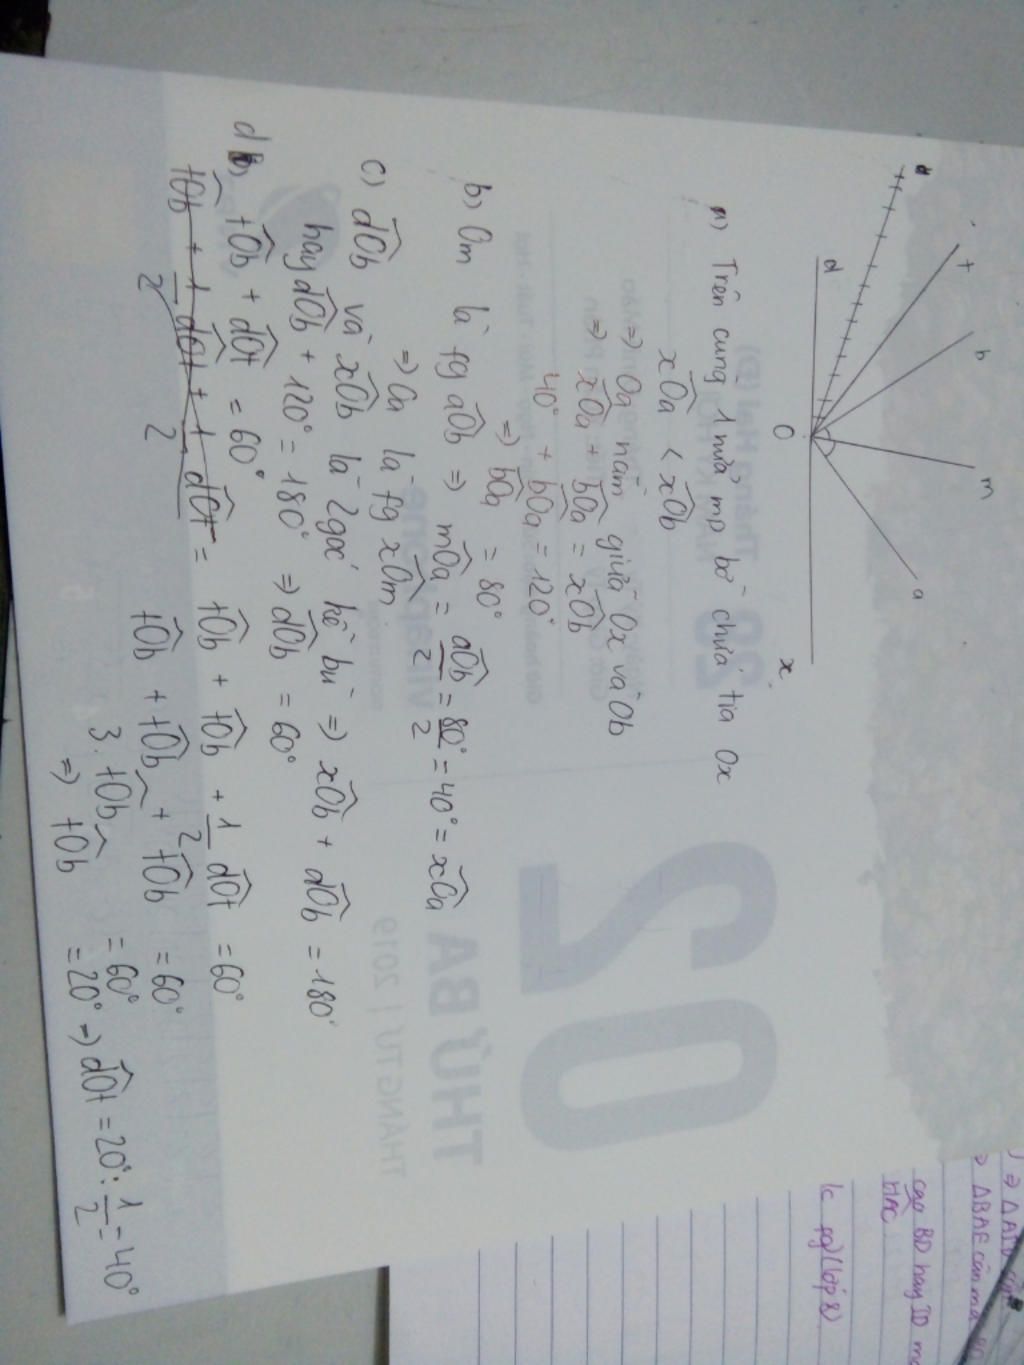 d
t
b
m
a
O
x
a) Trên cung 1 nửa mp bờ chứa tia Ox
xOa < xOb
=> Oa nằm giữa Ox và Ob
=> xOa + bOa = xOb
40° + bOa = 120°
=> bOa = 80°
b) Om là fg aOb => mOa = aOb/2 = 80°/2 = 40° = xOa
=> Oa là fg xOm
c) dOb và xOb là 2 góc kề bù => xOb + dOb = 180°
hay dOb + 120° = 180° => dOb = 60°
d) tOb + dOt = 60°
tOb + 1/2 dOt + 1/2 dOt = tOb + tOb + 1/2 dOt = 60°
tOb + tOb + tOb = 60°
3. tOb = 60°
=> tOb = 20° => dOt = 20° : 1/2 = 40°
20
THỨ BA
THÁNG TƯ | 2019
=> ΔBAE cân mà
cạo BD hay ID
HAC